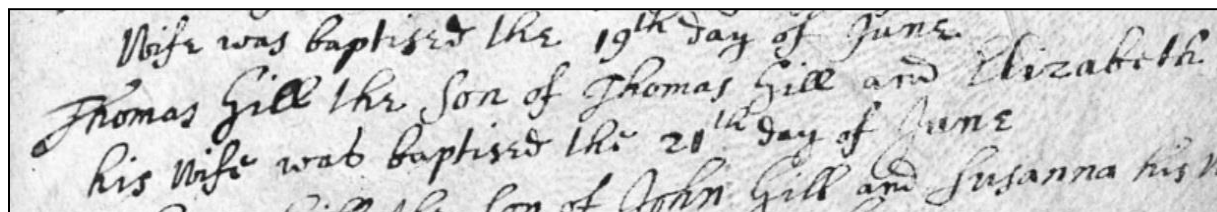 Wife was baptised the 19th day of June
Thomas Gill the Son of Thomas Gill and Elizabeth
his Wife was baptised the 21th day of June
Gill the Son of John Gill and Susanna his